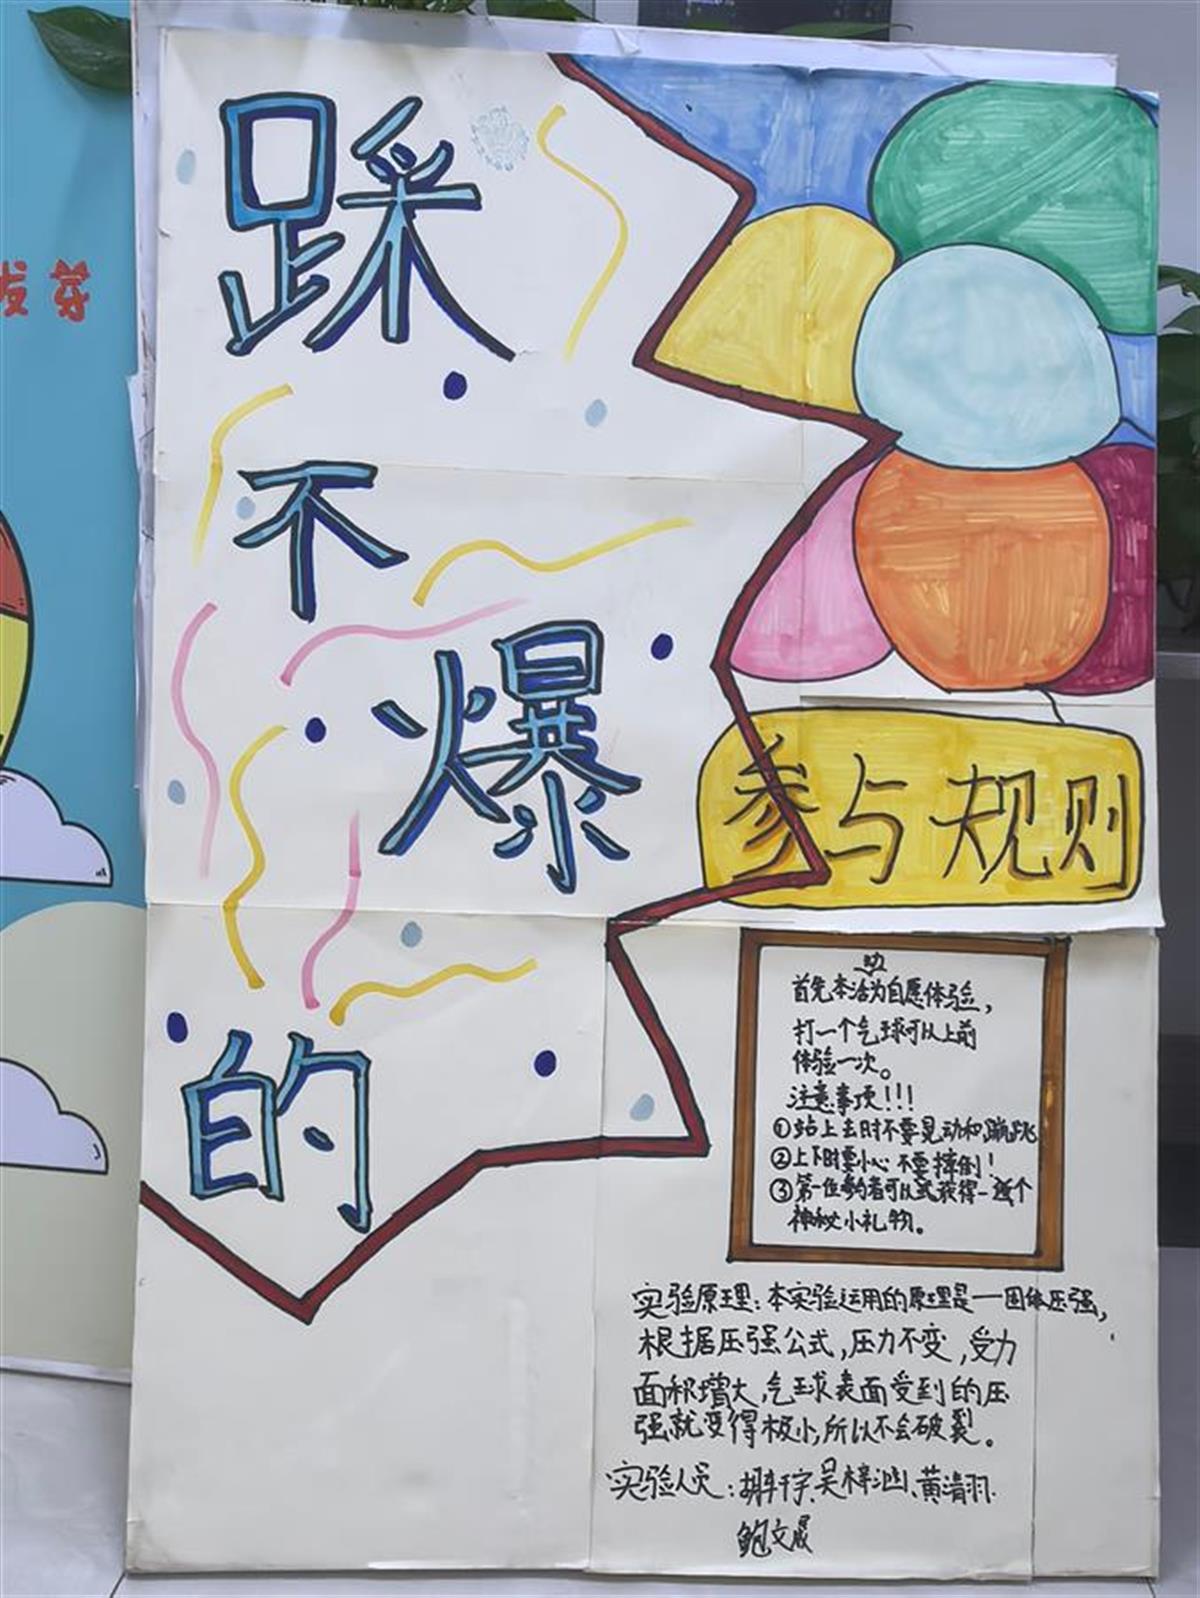 发芽
踩
不
爆
的
参与规则
首先本活动为自愿体验,
打一个气球可以上前
体验一次。
注意事项!!!
①站上去时不要晃动和蹦跳
②上下时要小心 不要摔倒!
③第一位参与者可以获得一个
神秘小礼物。
实验原理:本实验运用的原理是一固体压强,
根据压强公式,压力不变,受力
面积增大,气球表面受到的压
强就变得极小,所以不会破裂。
实验人员:吴梓涵、黄清羽
鲍文晟